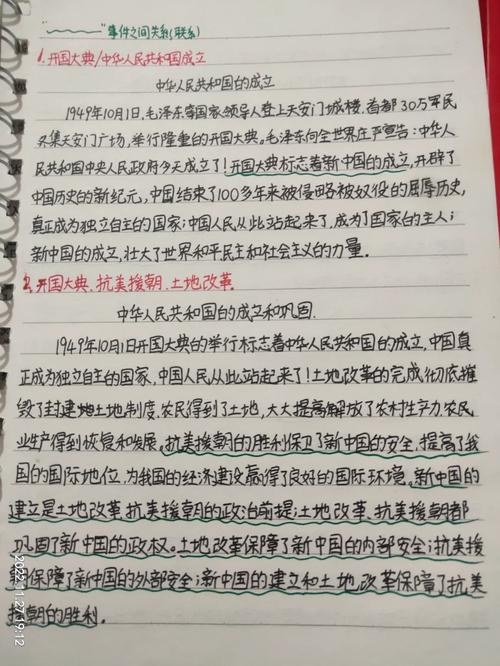 "事件之间关系(联系)
1.开国大典/中华人民共和国成立
中华人民共和国的成立
1949年10月1日,毛泽东等国家领导人登上天安门城楼.首都30万军民
又集天安门广场,举行隆重的开国大典。毛泽东向全世界庄严宣告:中华人
民共和国中央人民政府今天成立了!开国大典标志着新中国的成立,开辟了
中国历史的新纪元,中国结束了100多年来被侵略被奴役的屈辱历史,
真正成为独立自主的国家;中国人民从此站起来了,成为了国家的主人;
新中国的成立,壮大了世界和平民主和社会主义的力量.
2.开国大典、抗美援朝、土地改革
中华人民共和国的成立和巩固.
1949年10月1日开国大典的举行标志着中华人民共和国的成立,中国真
正成为独立自主的国家,中国人民从此站起来了!土地改革的完成彻底摧
毁了封建土地制度,农民得到了土地,大大提高解放了农村生产力.农民
业生产得到恢复和发展。抗美援朝的胜利保卫了新中国的安全,提高了我
国的国际地位,为我国的经济建设赢得了良好的国际环境。新中国的
建立是土地改革、抗美援朝的政治前提;土地改革、抗美援朝都
巩固了新中国的政权。土地改革保障了新中国的内部安全;抗美援
朝保障了新中国的外部安全;新中国的建立和土地改革保障了抗美
援朝的胜利.
2022.11.27 19:12